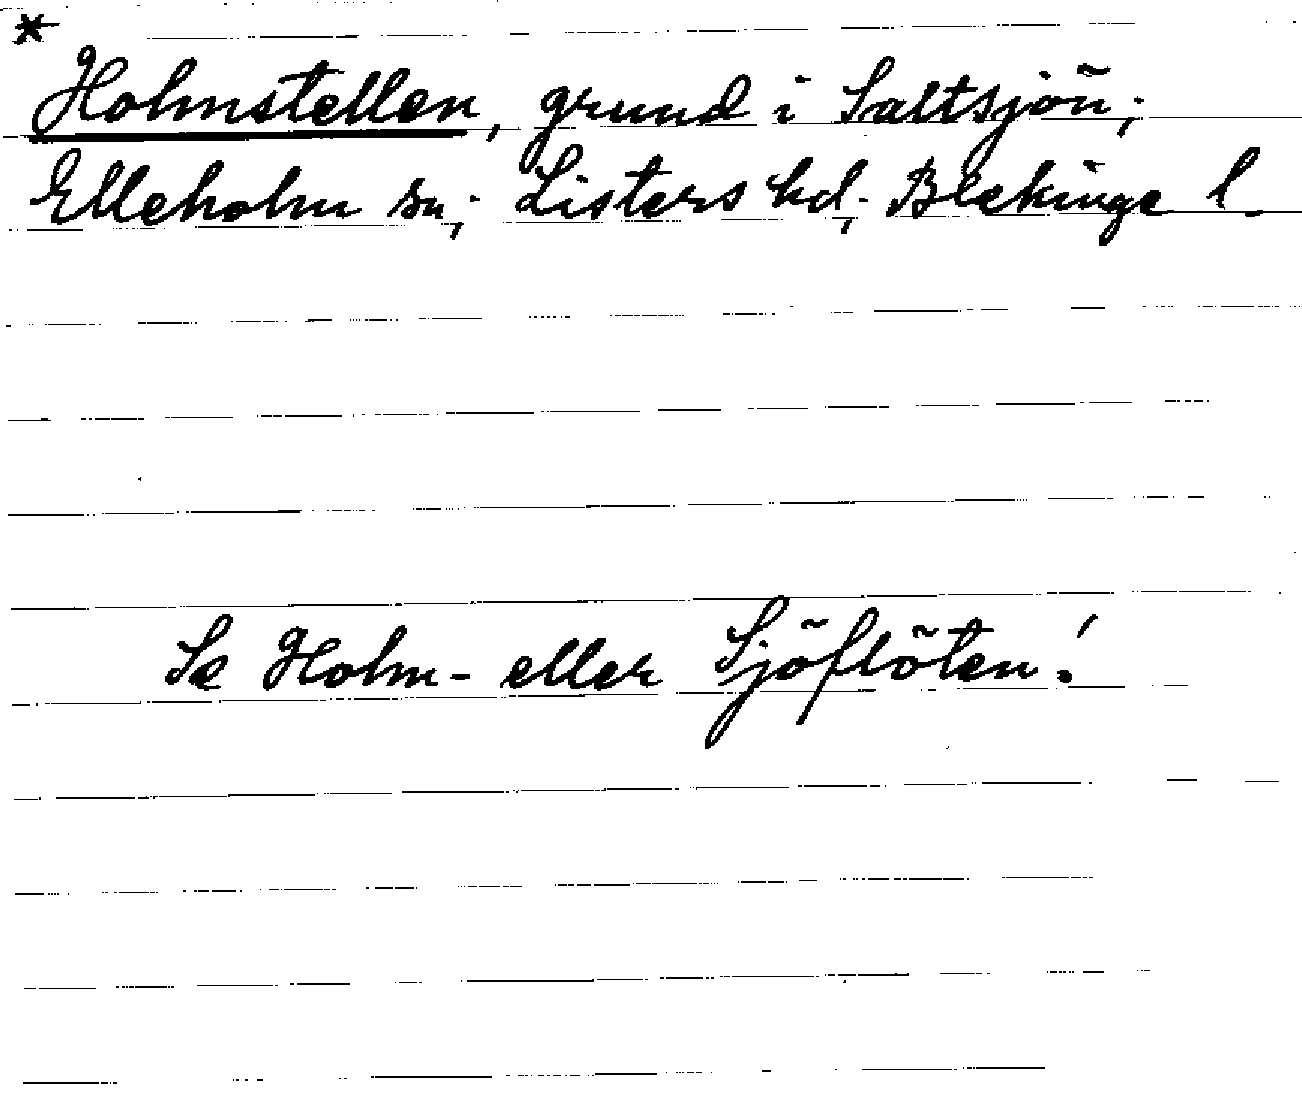 *
Holmstellen, grund i Saltsjön;
Elleholm sn; Listers hd; Blekinge l.
Se Holm- eller Sjöflöten!